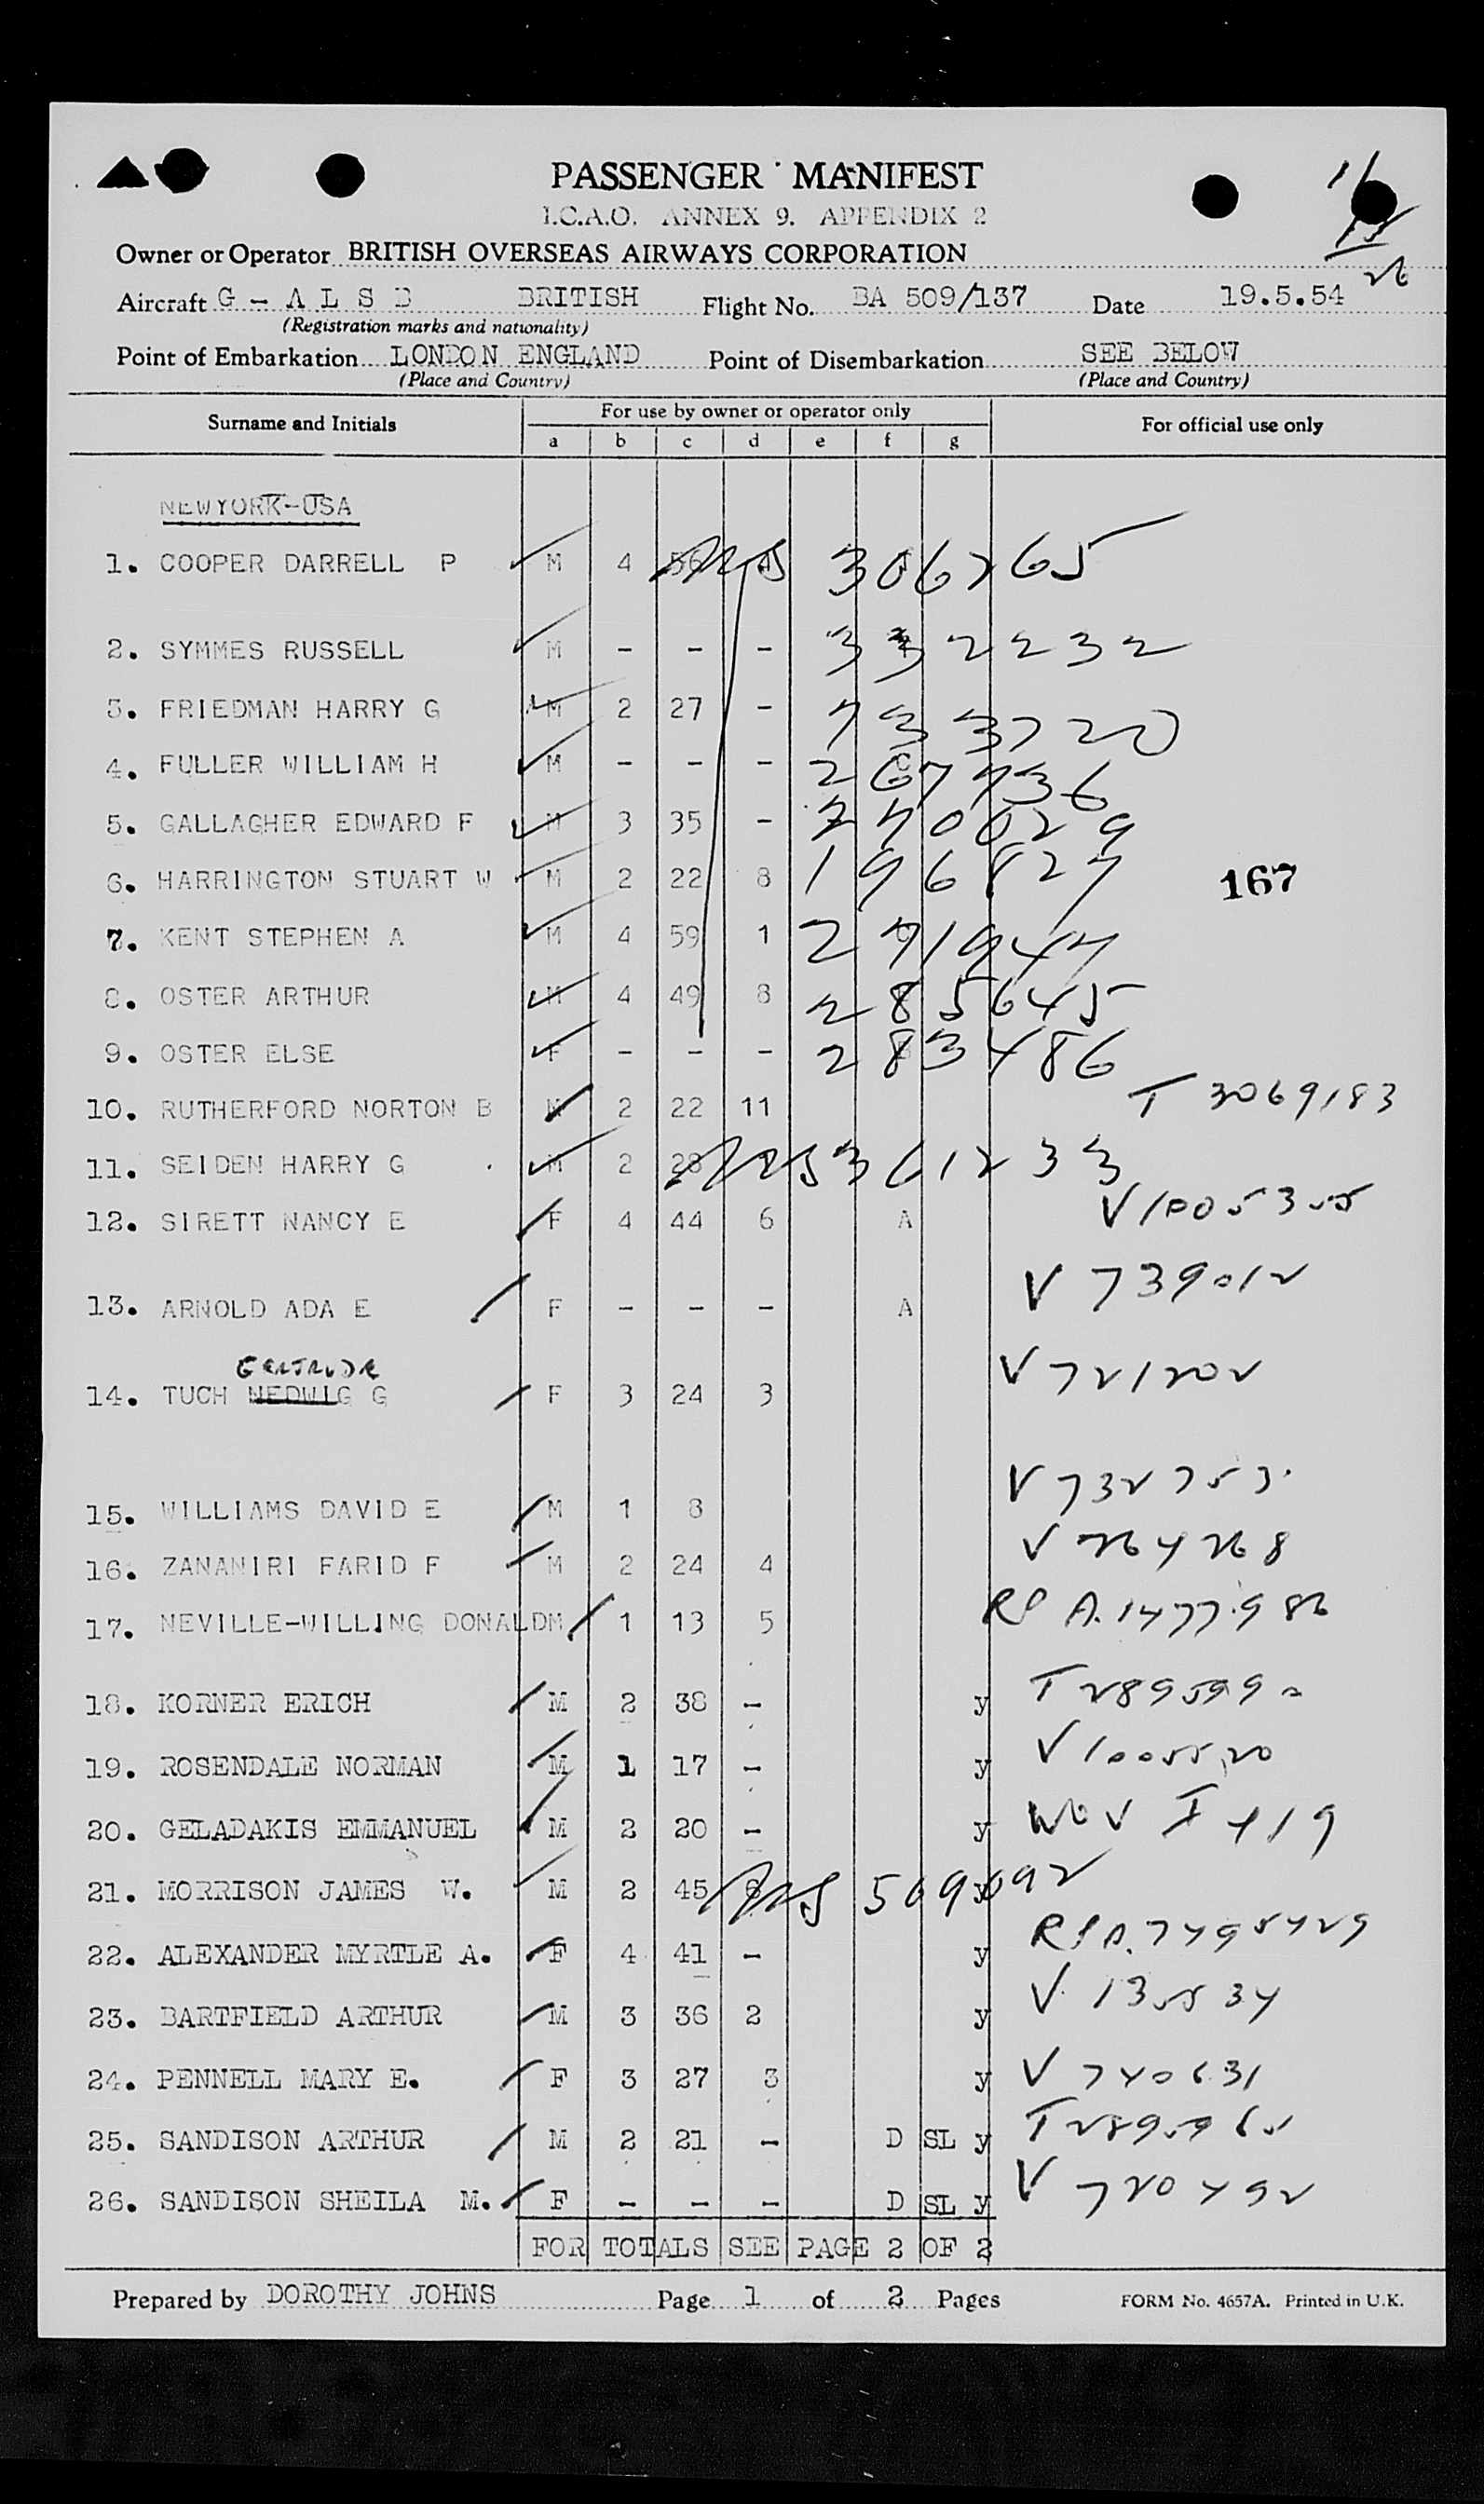 PASSENGER MANIFEST
I.C.A.O. ANNEX 9. APPENDIX 2
Owner or Operator BRITISH OVERSEAS AIRWAYS CORPORATION
Aircraft G - A L S D BRITISH Flight No. BA 509/137 Date 19.5.54
(Registration marks and nationality)
Point of Embarkation LONDON ENGLAND Point of Disembarkation SEE BELOW
(Place and Country) (Place and Country)
Surname and Initials For use by owner or operator only For official use only
a b c d e f g
NEWYORK-USA
1. COOPER DARRELL P M 4 56
2. SYMMES RUSSELL M - - - 332232
3. FRIEDMAN HARRY G M 2 27 - 733720
4. FULLER WILLIAM H M - - - 267736
5. GALLAGHER EDWARD F M 3 35 - 270029
6. HARRINGTON STUART W M 2 22 8 196827
167
7. KENT STEPHEN A M 4 59 1 271947
8. OSTER ARTHUR M 4 49 8 285645
9. OSTER ELSE F - - - 283486
10. RUTHERFORD NORTON B M 2 22 11 T 3069183
11. SEIDEN HARRY G M 2 28 361233
12. SIRETT NANCY E F 4 44 6 A V 1005355
13. ARNOLD ADA E F - - - A V 739012
GERTRUDE
14. TUCH HEDWIG G F 3 24 3 V 721202
15. WILLIAMS DAVID E M 1 8 V 732753
16. ZANANIRI FARID F M 2 24 4 V 764268
17. NEVILLE-WILLING DONALDM 1 13 5
18. KORNER ERICH M 2 38 - y
19. ROSENDALE NORMAN M 1 17 - y V 1005520
20. GELADAKIS EMMANUEL M 2 20 - y
21. MORRISON JAMES W. M 2 45 6 y
22. ALEXANDER MYRTLE A. F 4 41 - y
23. BARTFIELD ARTHUR M 3 36 2 y V 135534
24. PENNELL MARY E. F 3 27 3 y V 740631
25. SANDISON ARTHUR M 2 21 - D SL y
26. SANDISON SHEILA M. F - - - D SL y V 720492
FOR TOTALS SEE PAGE 2 OF 2
Prepared by DOROTHY JOHNS Page 1 of 2 Pages FORM No. 4657A. Printed in U.K.